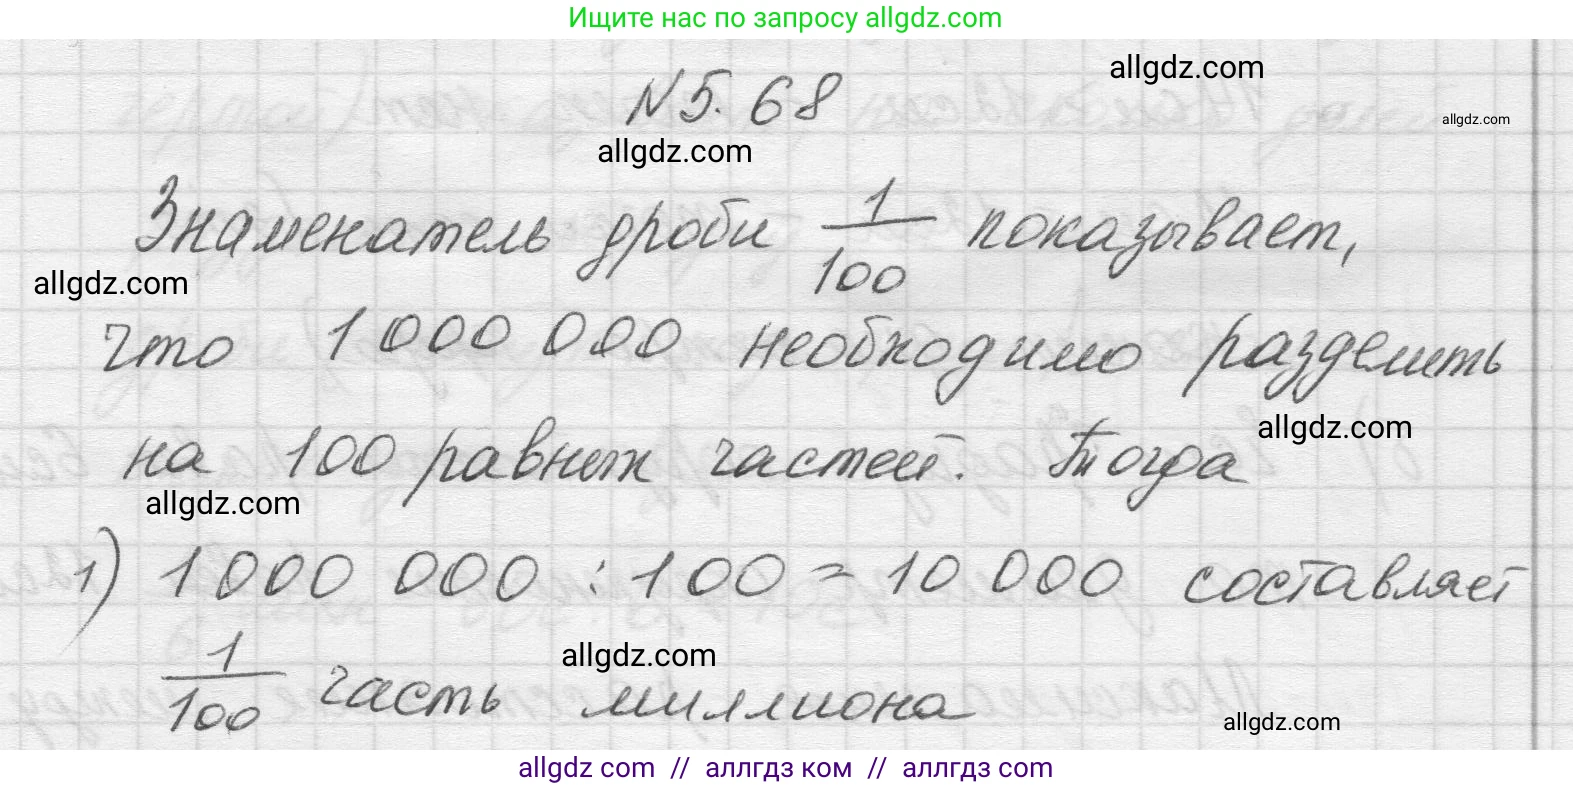 Ищите нас по запросу allgdz.com
allgdz.com
N 5.68
allgdz.com
allgdz.com
Знаменатель дроби 1/100 показывает,
allgdz.com
что 1 000 000 необходимо разделить
allgdz.com
на 100 равных частей. Тогда
allgdz.com
1) 1 000 000 : 100 = 10 000 составляет
allgdz.com
1/100 часть миллиона
allgdz.com
allgdz com // аллгдз ком // аллгдз com